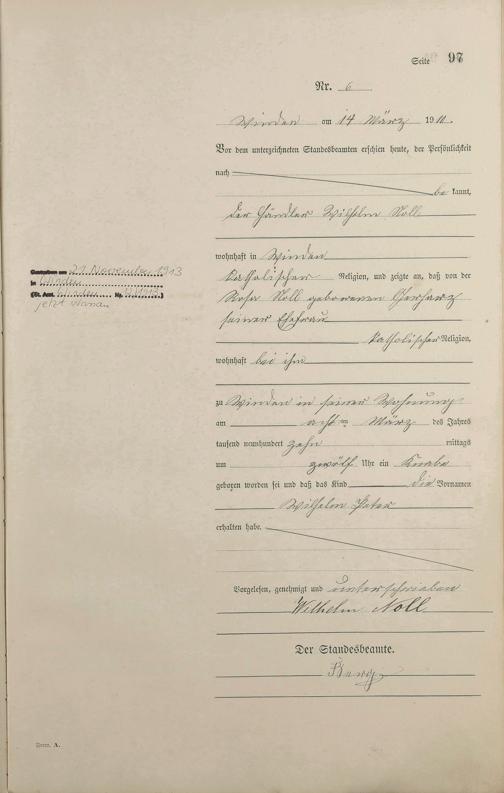 Seite 97
Nr. 6
Winden am 14 März 1910.
Vor dem unterzeichneten Standesbeamten erschien heute, der Persönlichkeit
nach
be kannt,
der Händler Wilhelm Noll
wohnhaft in Winden
katholischer Religion, und zeigte an, daß von der
Rosa Noll geborenen Gerharz
seiner Ehefrau
katholischer Religion,
wohnhaft bei ihm
zu Winden in seiner Wohnung
am acht ten März des Jahres
tausend neunhundert zehn mittags
um zwölf Uhr ein Knabe
geboren worden sei und daß das Kind die Vornamen
Wilhelm Peter
erhalten habe.
Vorgelesen, genehmigt und unterschrieben
Wilhelm Noll
Der Standesbeamte.
Gestorben am 21. November 1913
in Winden
(St. Amt Winden Nr.
jetzt
Form. A.